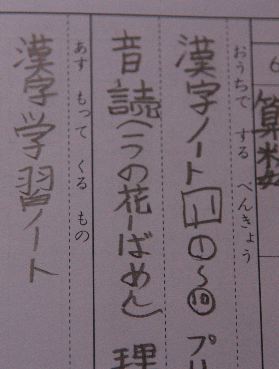 6
算数
おうちで する べんきょう
漢字ノート11①〜⑩ プリ
音読(一つの花一ばめん) 理
あす もって くる もの
漢字学習ノート